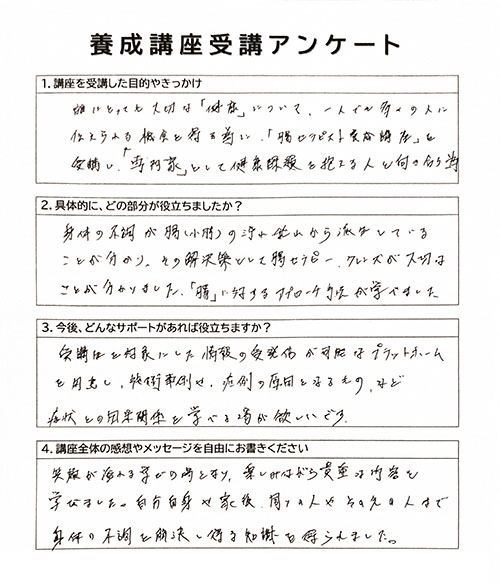 養成講座受講アンケート
1. 講座を受講した目的やきっかけ
誰にとっても大切な「健康」について、一人でも多くの人に
伝えられる機会を得る為に、「腸セラピスト養成講座」を
受講し、「専門家」として健康課題を抱える人と向き合う為
2. 具体的に、どの部分が役立ちましたか？
身体の不調が腸(小腸)の汚れ から派生している
ことが分かり、その解決策として腸セラピー、クレンズが大切な
ことが分かりました。「腸」に対するアプローチ方法が学べました
3. 今後、どんなサポートがあれば役立ちますか？
受講生を対象にした情報の受発信が可能なプラットホーム
を用意し、施術事例や、症例の原因となるもの、など
症状との因果関係を学べる場が欲しいです。
4. 講座全体の感想やメッセージを自由にお書きください
笑顔が溢れる学びの場となり、楽しみながら貴重な内容を
学びました。自分自身や家族、周りの人やその先の人まで
身体の不調を解決し得る知識を得られました。